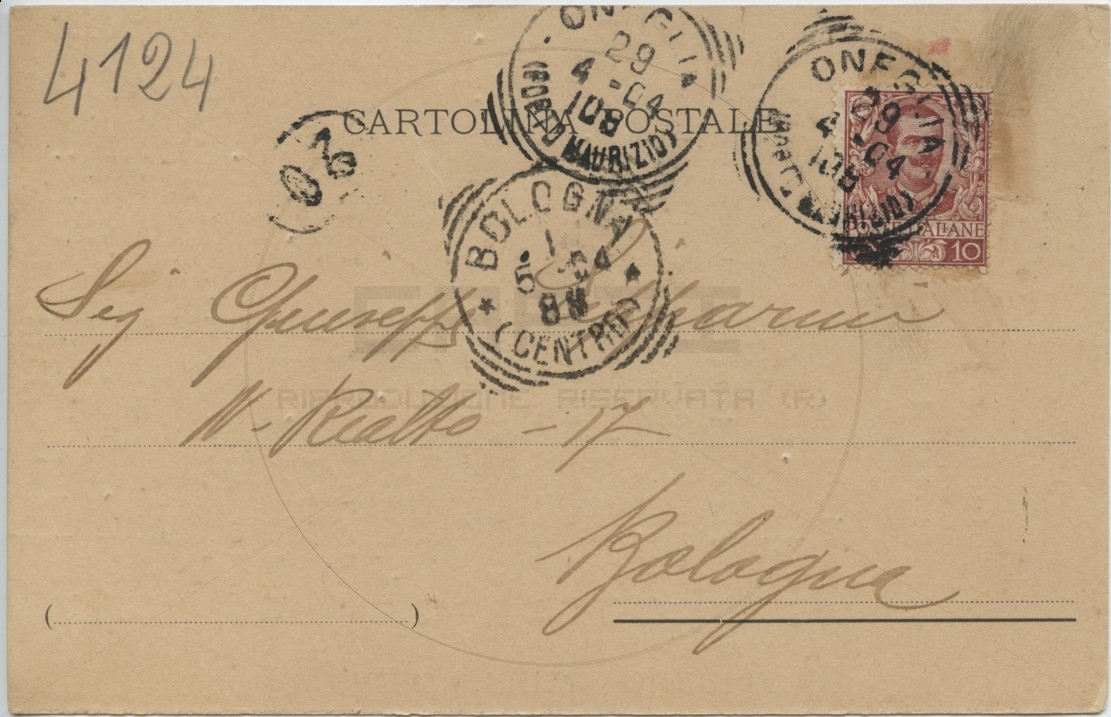 4124
CARTOLINA POSTALE
ONEGLIA
29
4-04
10S
(PORTO MAURIZIO)
ONEGLIA
29
4-04
10S
(PORTO MAURIZIO)
POSTE ITALIANE
10
BOLOGNA
1
5-04
8M
(CENTRO)
Sig Giuseppe
RIPRODUZIONE RISERVATA (R)
N. Rialto - 17
Bologna